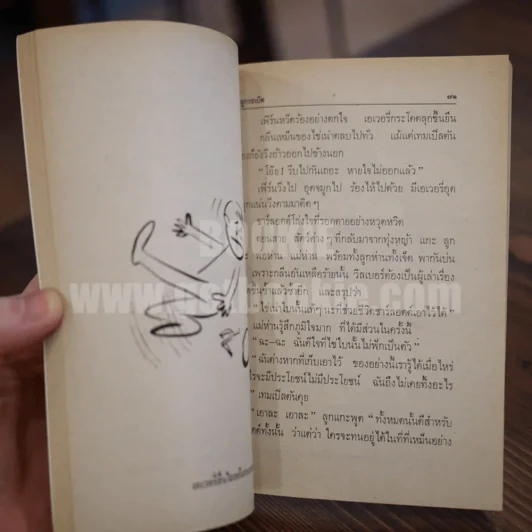 ๗๑
เฟิร์นหวีดร้องอย่างตกใจ เอเวอรี่กระโดดลุกขึ้นยืน
กลิ่นเหม็นของไข่เน่าตลบไปทั่ว แม้แต่เทมเปิลตัน
ยังวิ่งอ้าวออกไปข้างนอก
“โอ๊ย! รีบไปกันเถอะ หายใจไม่ออกแล้ว”
เฟิร์นวิ่งไป อุดจมูกไป ร้องไห้ไปด้วย มีเอเวอรี่อุด
แน่นวิ่งตามมาติดๆ
ชาร์ลอตต์โล่งใจที่รอดตายอย่างหวุดหวิด
ตอนสาย สัตว์ต่างๆ ที่กลับมาจากทุ่งหญ้า แกะ ลูก
แม่ห่าน พร้อมทั้งลูกห่านทั้งเจ็ด พากันบ่น
เพราะกลิ่นอันเหลือร้ายนั้น วิลเบอร์ต้องเป็นผู้เล่าเรื่อง
และสรุปว่า
“ไข่เน่าใบนั้นแท้ๆ นะที่ช่วยชีวิตชาร์ลอตต์เอาไว้ได้”
แม่ห่านรู้สึกภูมิใจมาก ที่ได้มีส่วนในครั้งนี้
“ฉะ-ฉะ ฉันดีใจที่ไข่ใบนั้นไม่ฟักเป็นตัว”
“ฉันต่างหากที่เก็บเอาไว้ ของอย่างนี้เรารู้ได้เมื่อไหร่
จะมีประโยชน์ไม่มีประโยชน์ ฉันถึงไม่เคยทิ้งอะไร
” เทมเปิลตันคุย
“เอาละ เอาละ” ลูกแกะพูด “ทั้งหมดนั้นดีสำหรับ
ทั้งนั้น ว่าแต่ว่า ใครจะทนอยู่ได้ในที่ที่เหม็นอย่าง